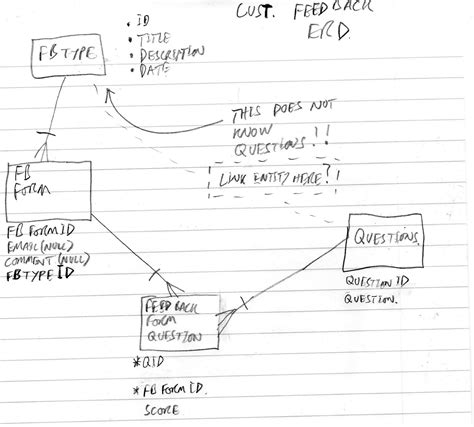 CUST. FEEDBACK
ERD.
FBTYPE
• ID
• TITLE
• DESCRIPTION
• DATE
THIS DOES NOT
KNOW
QUESTIONS!!
LINK ENTITY HERE?!
FB
FORM
FB FORM ID
EMAIL (NULL)
COMMENT (NULL)
FBTYPE ID
QUESTIONS
QUESTION ID
QUESTION.
FEEDBACK
FORM
QUESTION
*QID
*FB FORM ID.
SCORE